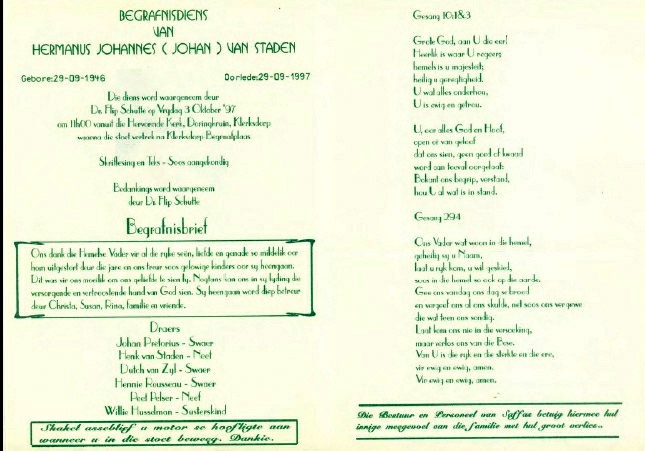 BEGRAFNISDIENS
VAN
HERMANUS JOHANNES ( JOHAN ) VAN STADEN
Gebore:29-09-1946 Oorlede:29-09-1997
Die diens word waargeneem deur
Dr. Flip Schutte op Vrydag 3 Oktober '97
om 11h00 vanuit die Hervormde Kerk, Doringkruin, Klerksdorp
waarna die stoet vertrek na Klerksdorp Begraafplaas
Skriflesing en Teks - Soos aangekondig
Bedankings word waargeneem
deur Dr. Flip Schutte
Begrafnisbrief
Ons dank die Hemelse Vader vir al die ryke seën, liefde en genade so middelik oor
hom uitgestort deur die jare en ons treur soos gelowige kinders oor sy heengaan.
Dit was vir ons moeilik om ons geliefde te sien ly. Nogtans kon ons in sy lyding die
versorgende en vertroostende hand van God sien. Sy heengaan word diep betreur
deur Christa, Susan, Rina, familie en vriende.
Draers
Johan Pretorius - Swaer
Henk van Staden - Neef
Dutch van Zyl - Swaer
Hennie Rousseau - Swaer
Poet Pelser - Neef
Willie Husselman - Susterskind
Skakel asseblief u motor se hoofligte aan
wanneer u in die stoet beweeg. Dankie.
Gesang 10:1&3
Grote God, aan U die eer!
Heerlik is waar U regeer;
hemels is u majesteit;
heilig u geregtigheid.
U wat alles onderhou,
U is ewig en getrou.
U, oor alles God en Hoof,
open er van geloof
dat ons sien, geen goed of kwaad
word aan toeval oorgelaat:
Bokant ons begrip, verstand,
hou U al wat is in stand.
Gesang 294
Ons Vader wat woon in die hemel,
geheilig sy u Naam,
laat u ryk kom, u wil geskied,
soos in die hemel so ook op die aarde.
Gee ons vandag ons dag se brood
en vergeef ons al ons skulde, net soos ons vergewe
die wat teen ons sondig.
Laat kom ons nie in die versoeking,
maar verlos ons van die Bose.
Van U is die ryk en die sterkte en die eer,
vir ewig en ewig, amen.
Vir ewig en ewig, amen.
Die Bestuur en Personeel van Soffas betuig hiermee hul
innige meegevoel aan die familie met hul groot verlies..